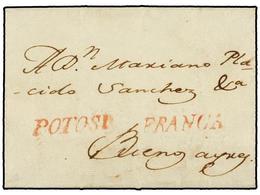 A Dn Mariano Pla
cido Sanchez &a
POTOSI FRANCA
Buenos ayres